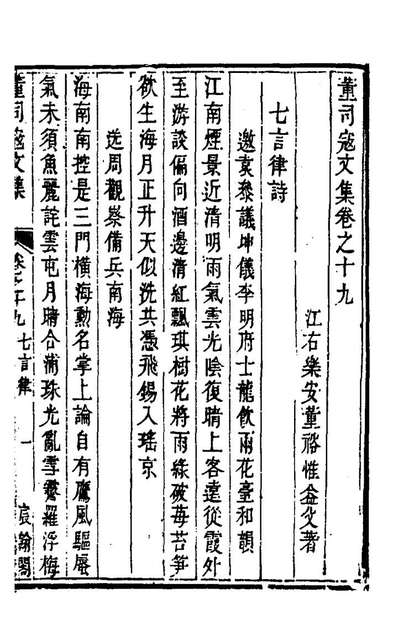 董司寇文集卷之十九
江右樂安董裕惟益父著
七言律詩
邀袁叅議坤儀李明府士龍飲雨花臺和韻
江南煙景近清明雨氣雲光陰復晴上客遠從霞外
至游談偏向酒邊清紅飄琪樹花將雨綠破莓苔笋
欲生海月正升天似洗共憑飛錫入瑤京
送周觀峯備兵南海
海南南控是三門橫海勲名掌上論自有鷹風驅蜃
氣未須魚麗詫雲屯月晴合浦珠光亂雪霽羅浮梅
董司寇文集
卷之十九
七言律
一
翰閣